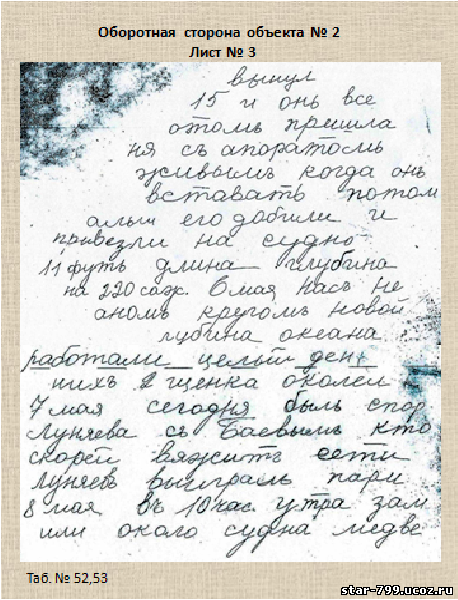 Оборотная сторона объекта № 2
Лист № 3
вынул
15 и онъ все
отомъ пришла
ня съ апоратомъ
живымъ когда онъ
вставать потом
его добили и
привезли на судно
11 футъ длина глубина
на 220 саж. 6 мая насъ не
аномъ кругомъ новой
лубина океана
работали целый ден
нихъ 2 щенка околел
7 мая сегодня былъ спор
Луняева съ Баевымъ кто
скорей вяжитъ сети
Луняевъ выигралъ пари
8 мая въ 10 час. утра зам
или около судна медве
Таб. № 52,53
star-799.ucoz.ru